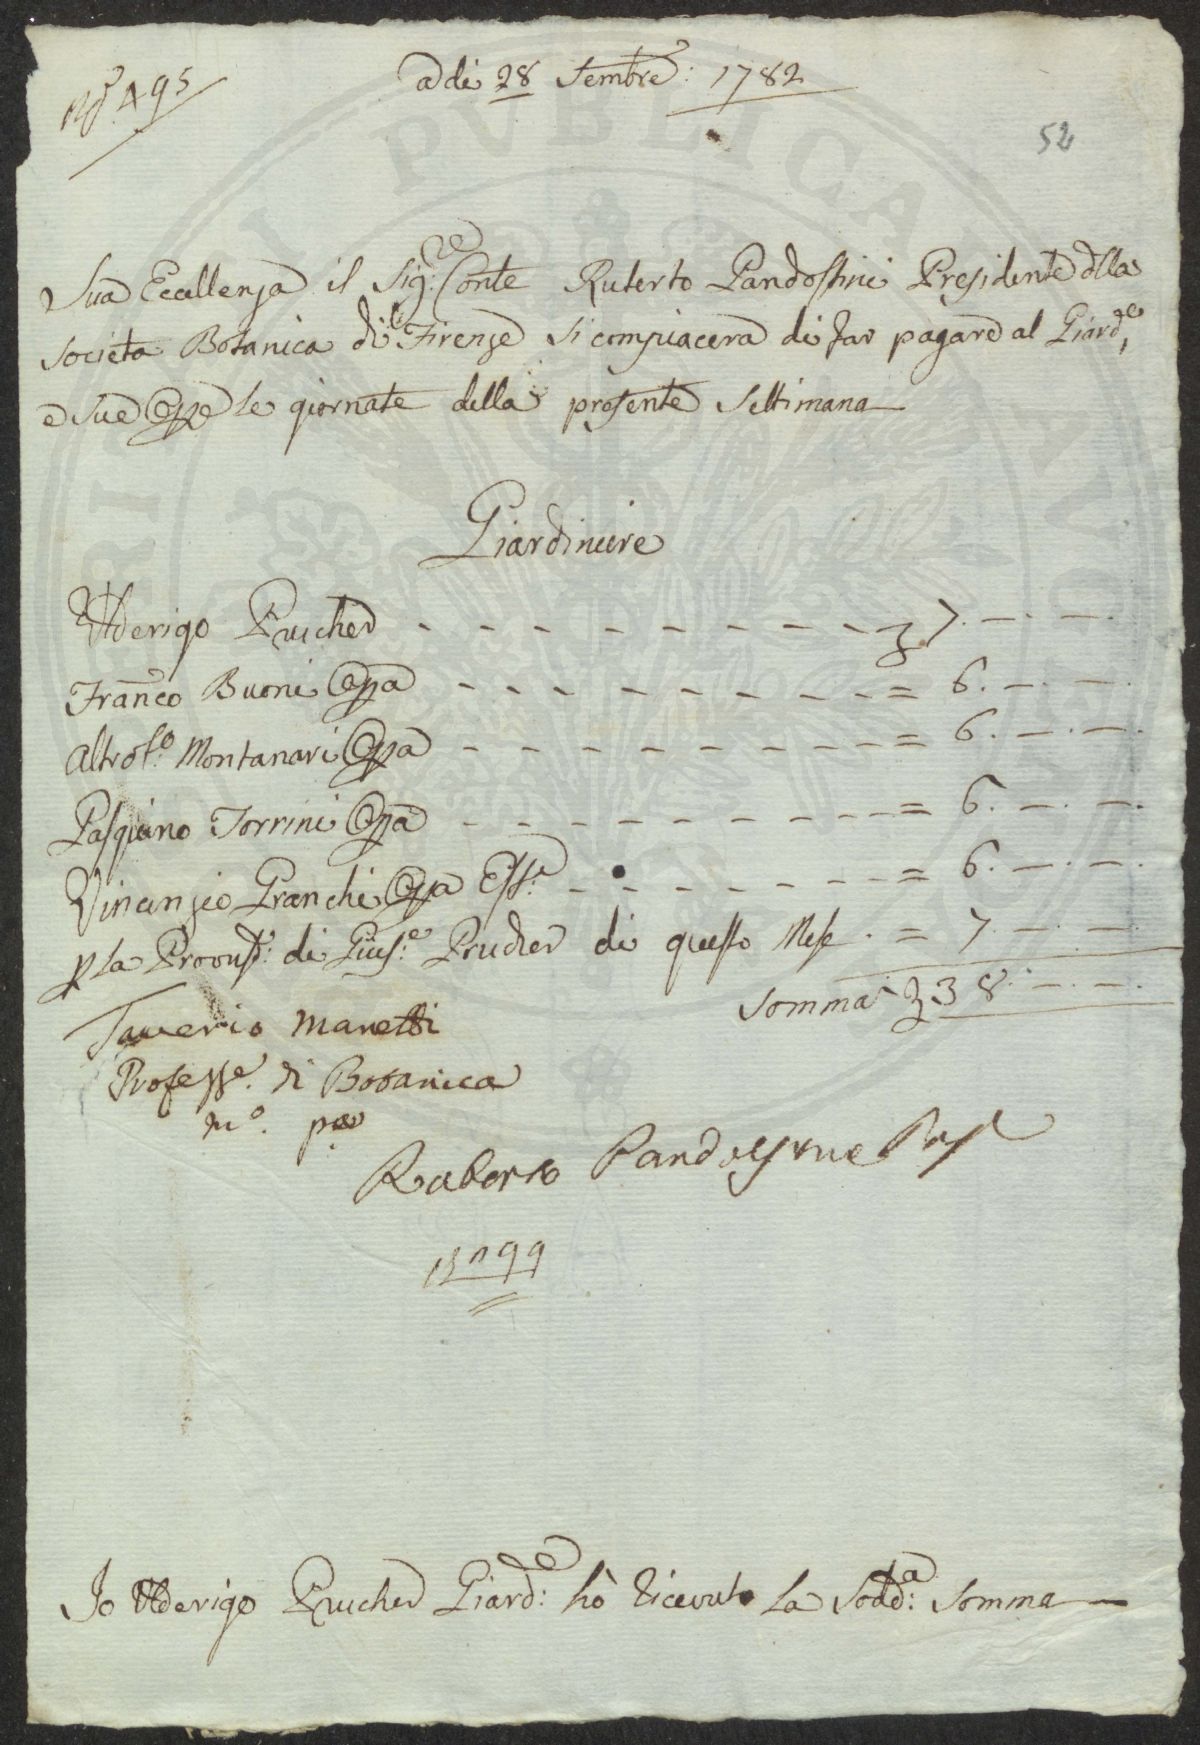 N.º 495
adi 28 Sembre: 1782
52
Sua Eccellenza il Sig:re Conte Ruberto Pandolfini Presidente dlla
Societa Botanica di Firenze si compiacera di far pagare al Giard.e
e sue Oppe le giornate della presente Settimana
Giardiniere
Ulderigo Prucher - - - - - - - - - - - £ 7. — . —
Franco Buoni Oppa - - - - - - - - - - = 6. — . — .
Montanari Oppa - - - - - - - - - - = 6. — . — .
Pasquino Torrini Oppa - - - - - - - - - - = 6. — . — .
Vincenzio Granchi Oppa - - - - - - - = 6. — . — .
p la Provvis: di Gius:e Prucher di questo Mese . = 7. — . — .
Somma £ 38. — . — .
Saverio Manetti
Professre. di Botanica
m.o po
Ruberto Pandolfini Pres
99
Io Ulderigo Prucher Giard:e hò ricevuto la Sodd:a Somma
PVBLICA